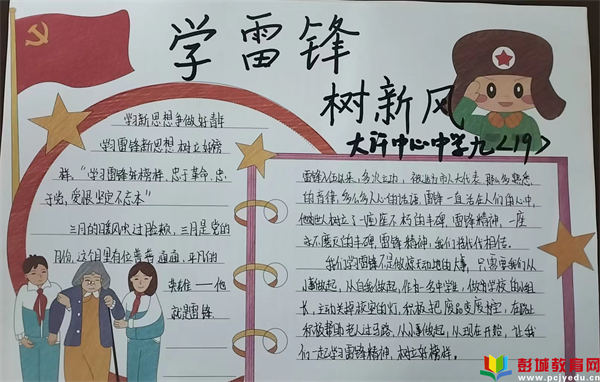 学雷锋
树新风
大许中心中学九<19>
学习新思想争做好青年
学习雷锋新思想 树立好榜
样。“学习雷锋好榜样，忠于革命，忠
于党，爱恨坚定不忘本”
三月的暖风吹过脸颊，三月是党的
月份，这个月里有位普普通通，平凡的
英雄——他
就是雷锋
雷锋入伍以来，多次立功，被选为市人大代表
的言传，多么多人心的话语，雷锋一直活在人们的心中，
他为世人树立了一座座不朽的丰碑，雷锋精神，一座
永不磨灭的丰碑，雷锋精神，我们世代代相信。
我们学雷锋不是做惊天动地的大事，只需要我们从
小事做起，从自我做起，作为一名中学生，做为学校的小组
长，主动关掉教室的灯，积极把废品变废为宝，在路上
积极帮助老人过马路，从小事做起，从现在开始，让我
们一起学习雷锋精神，树立好榜样。
彭城教育网
www.pcjyedu.cn